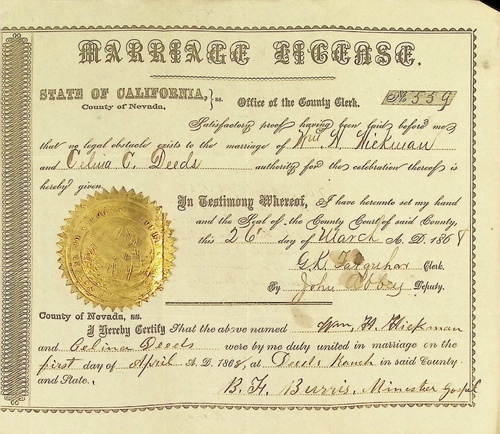 MARRIAGE LICENSE.
STATE OF CALIFORNIA, } ss.
County of Nevada,
Office of the County Clerk.
No 559
Satisfactory proof having been laid before me
that no legal obstacle exists to the marriage of Wm H. Hickman
and Celina C. Deeds authority for the celebration thereof is
hereby given.
In Testimony Whereof, I have hereunto set my hand
and the Seal of the County Court of said County,
this 26 day of March A. D. 1868
G.K. Farquhar Clerk.
By John Deputy.
County of Nevada, ss.
I Hereby Certify That the above named Wm. H. Hickman
and Celina Deeds were by me duly united in marriage on the
first day of April A. D. 1868, at Deeds Ranch in said County
and State.
B. H. Minister Gospel